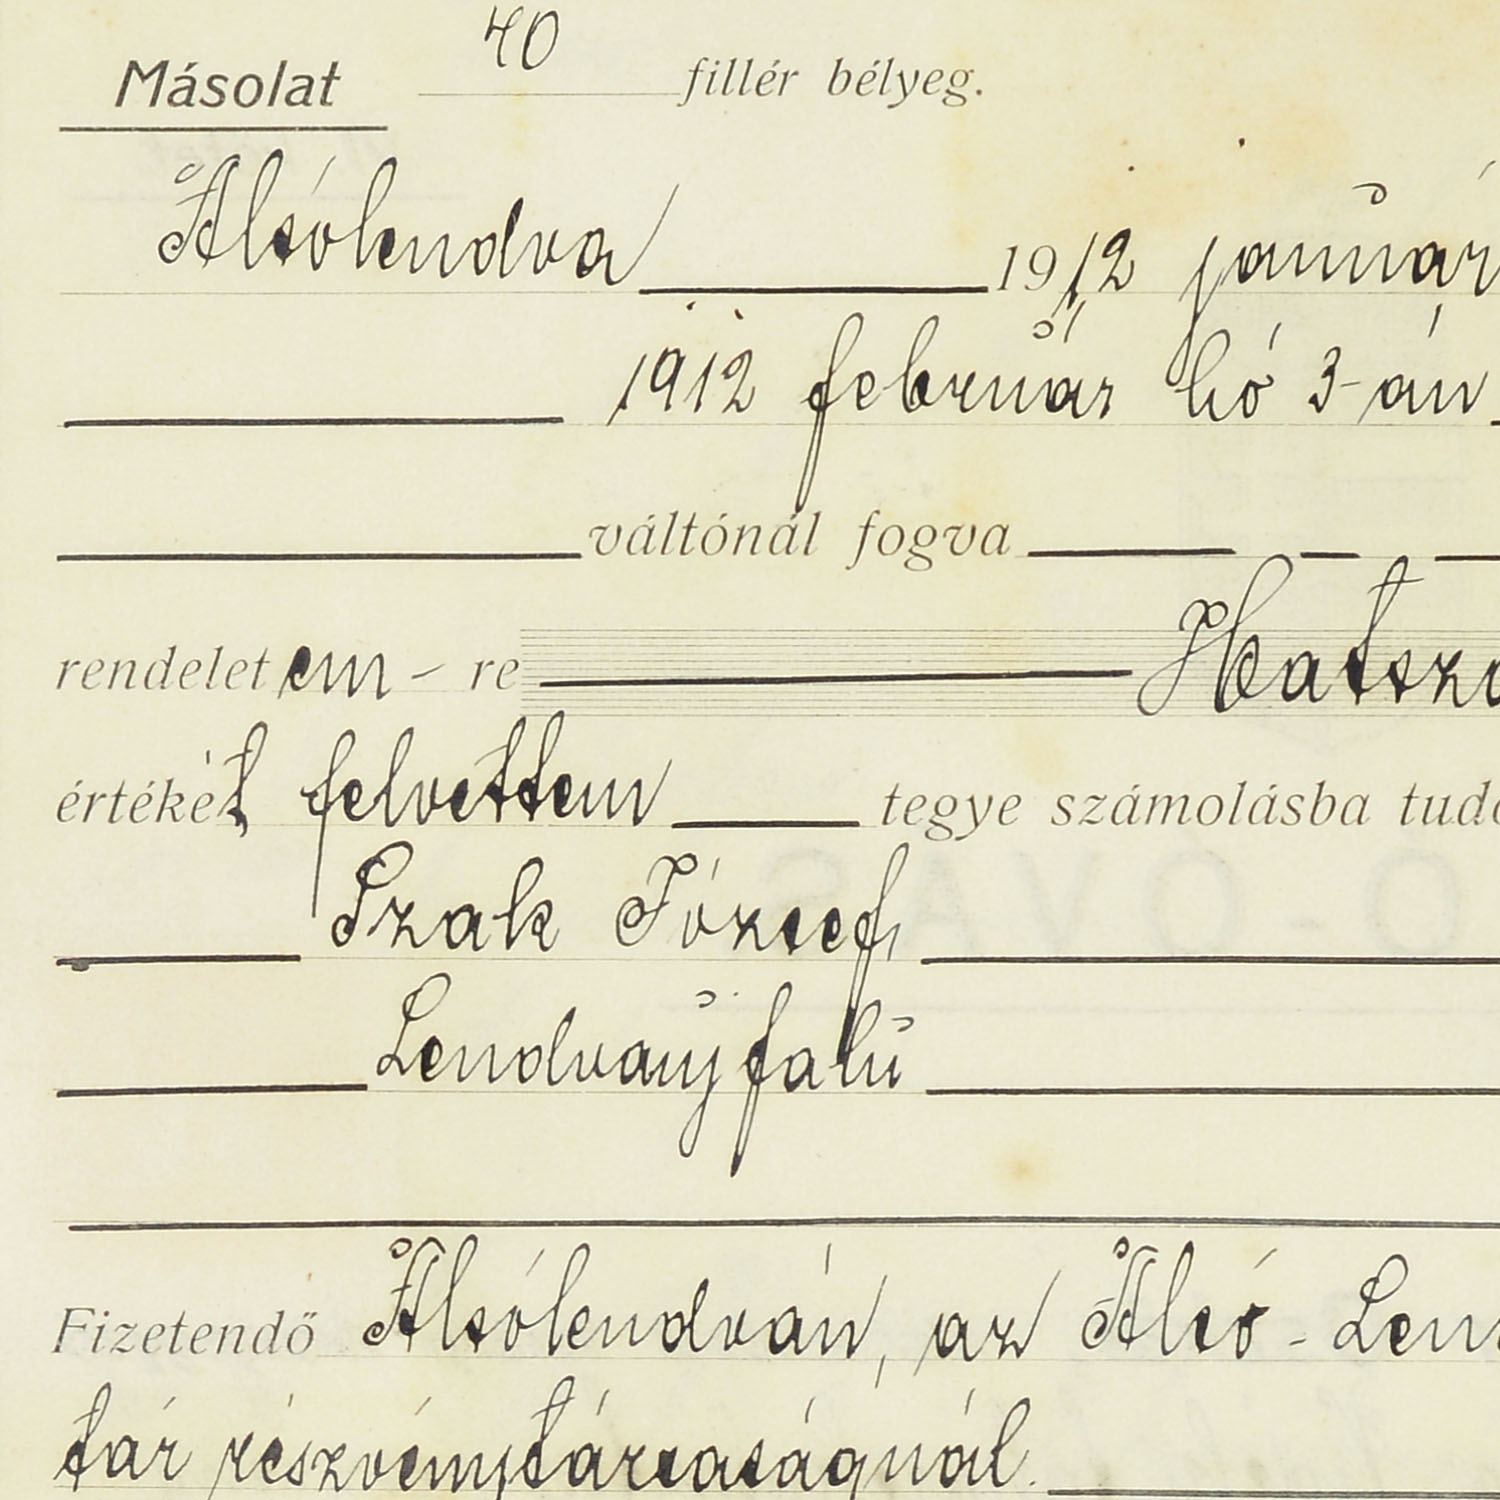 Másolat 40 fillér bélyeg.
Alsólendva 1912 január
1912 február hó 3-án
váltónál fogva
rendeletem - re Hatszá
értékét felvettem tegye számolásba tudó
Szak József,
Lendvaújfalu
Fizetendő Alsólendván, az Alsó - Len
tár részvénytársaságnál.